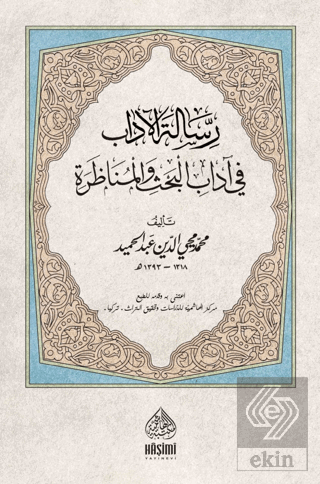 رسالة الآداب
في آداب البحث والمناظرة
تأليف
محمد محيي الدين عبد الحميد
١٣١٨ - ١٣٩٣ هـ
اعتنى به وقدمه للطبع
مركز الهاشمية للدراسات وتحقيق التراث - تركيا.
HÂŞİMİ
YAYINEVİ
ekin